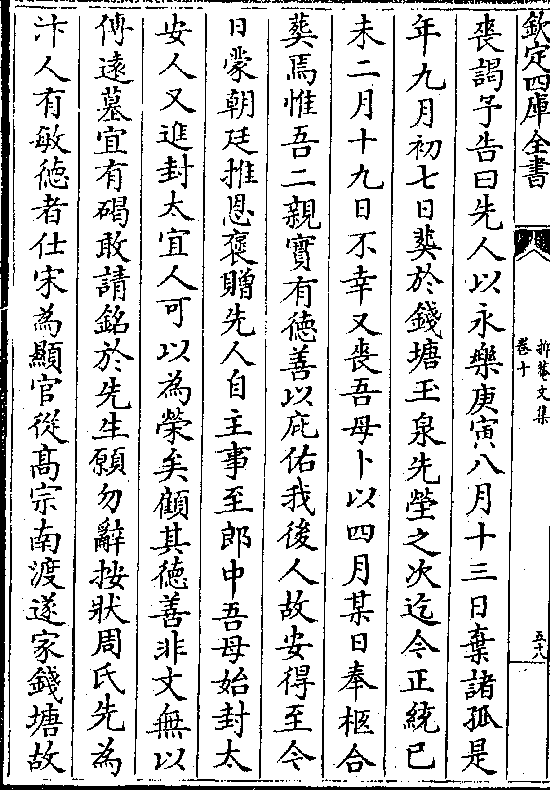 欽定四庫全書
抑菴文集
卷十
五十八
喪謁予告曰先人以永樂庚寅八月十三日棄諸孤是
年九月初七日葬於錢塘玉泉先塋之次迄今正統己
未二月十九日不幸又喪吾母卜以四月某日奉柩合
葬焉惟吾二親寳有徳善以庇佑我後人故安得至今
日蒙朝廷推恩褒贈先人自主事至郎中吾母始封太
安人又進封太宜人可以為榮矣顧其徳善非文無以
傳逺墓宜有碣敢請銘於先生願勿辭按狀周氏先為
汴人有敏徳者仕宋為顯官從髙宗南渡遂家錢塘故